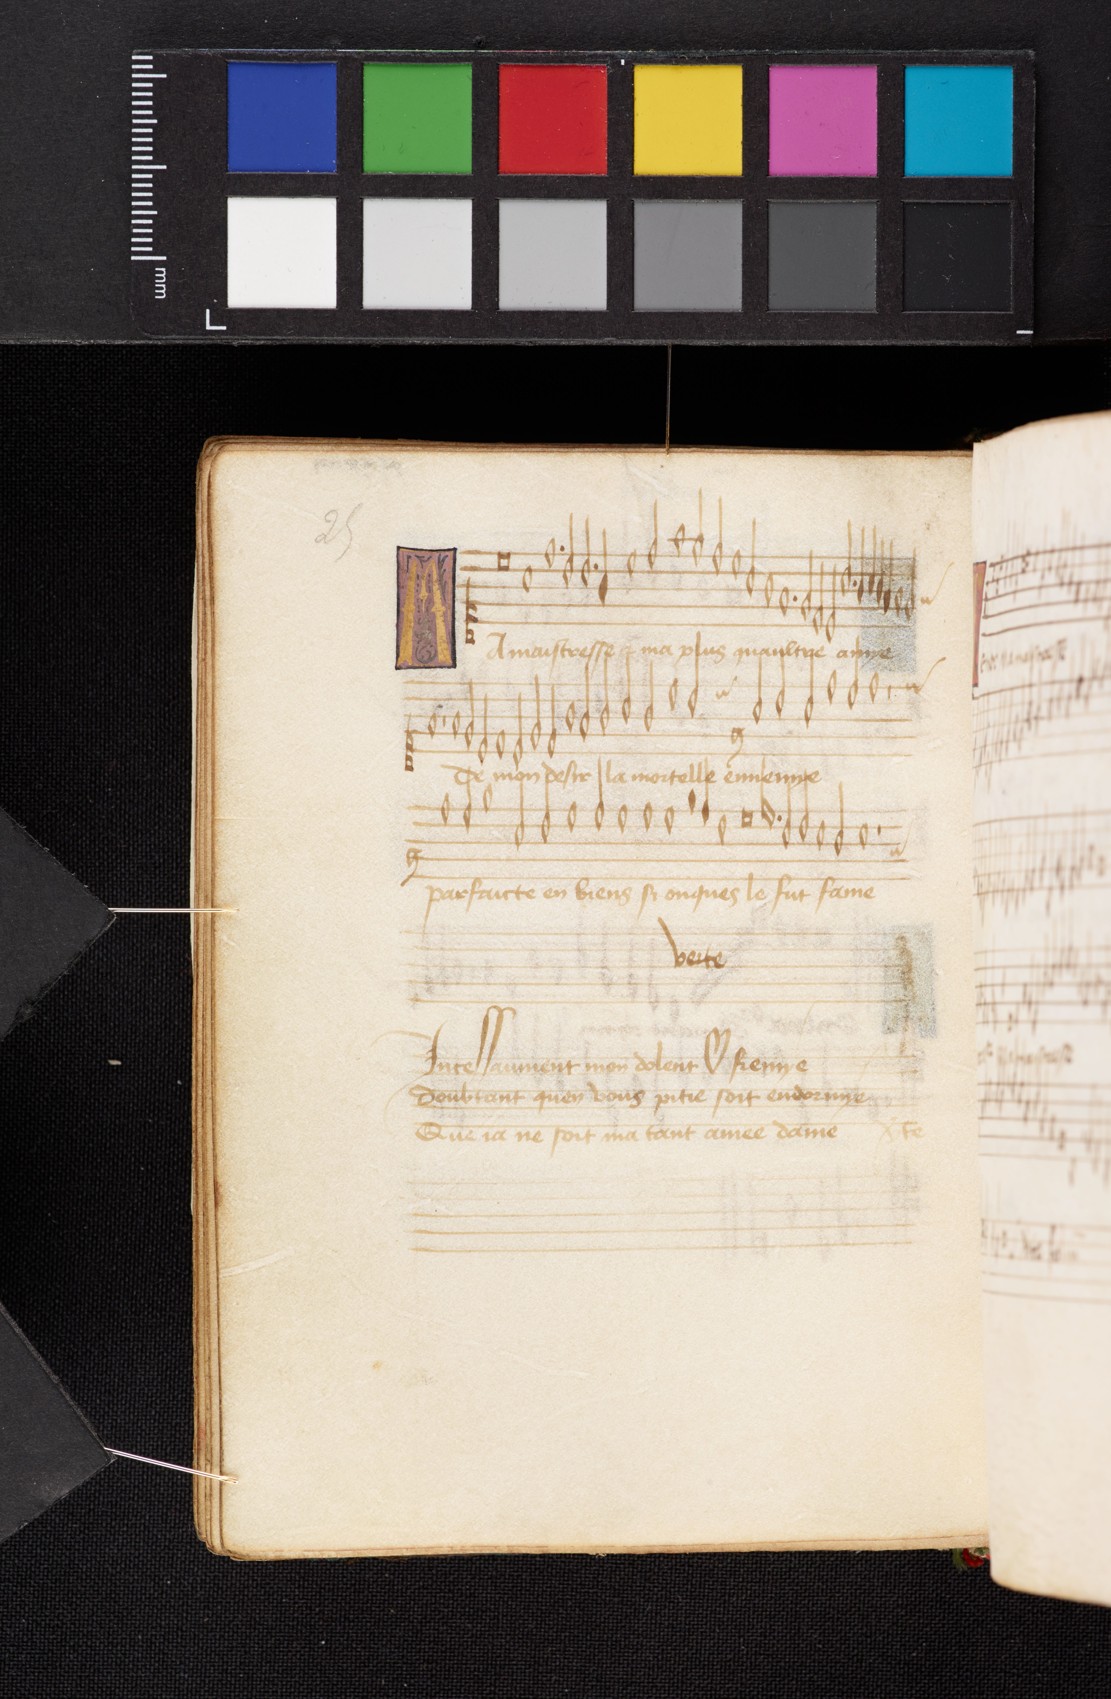 mm
25
MA maistresse et ma plus quaultre amye
De mon desir la mortelle ennemye
parfaicte en biens si onques le fut fame
verte
Incessaument mon dolent fremye
Doubtant quen vous pitie soit endormye
Que ia ne soit ma tant amee dame